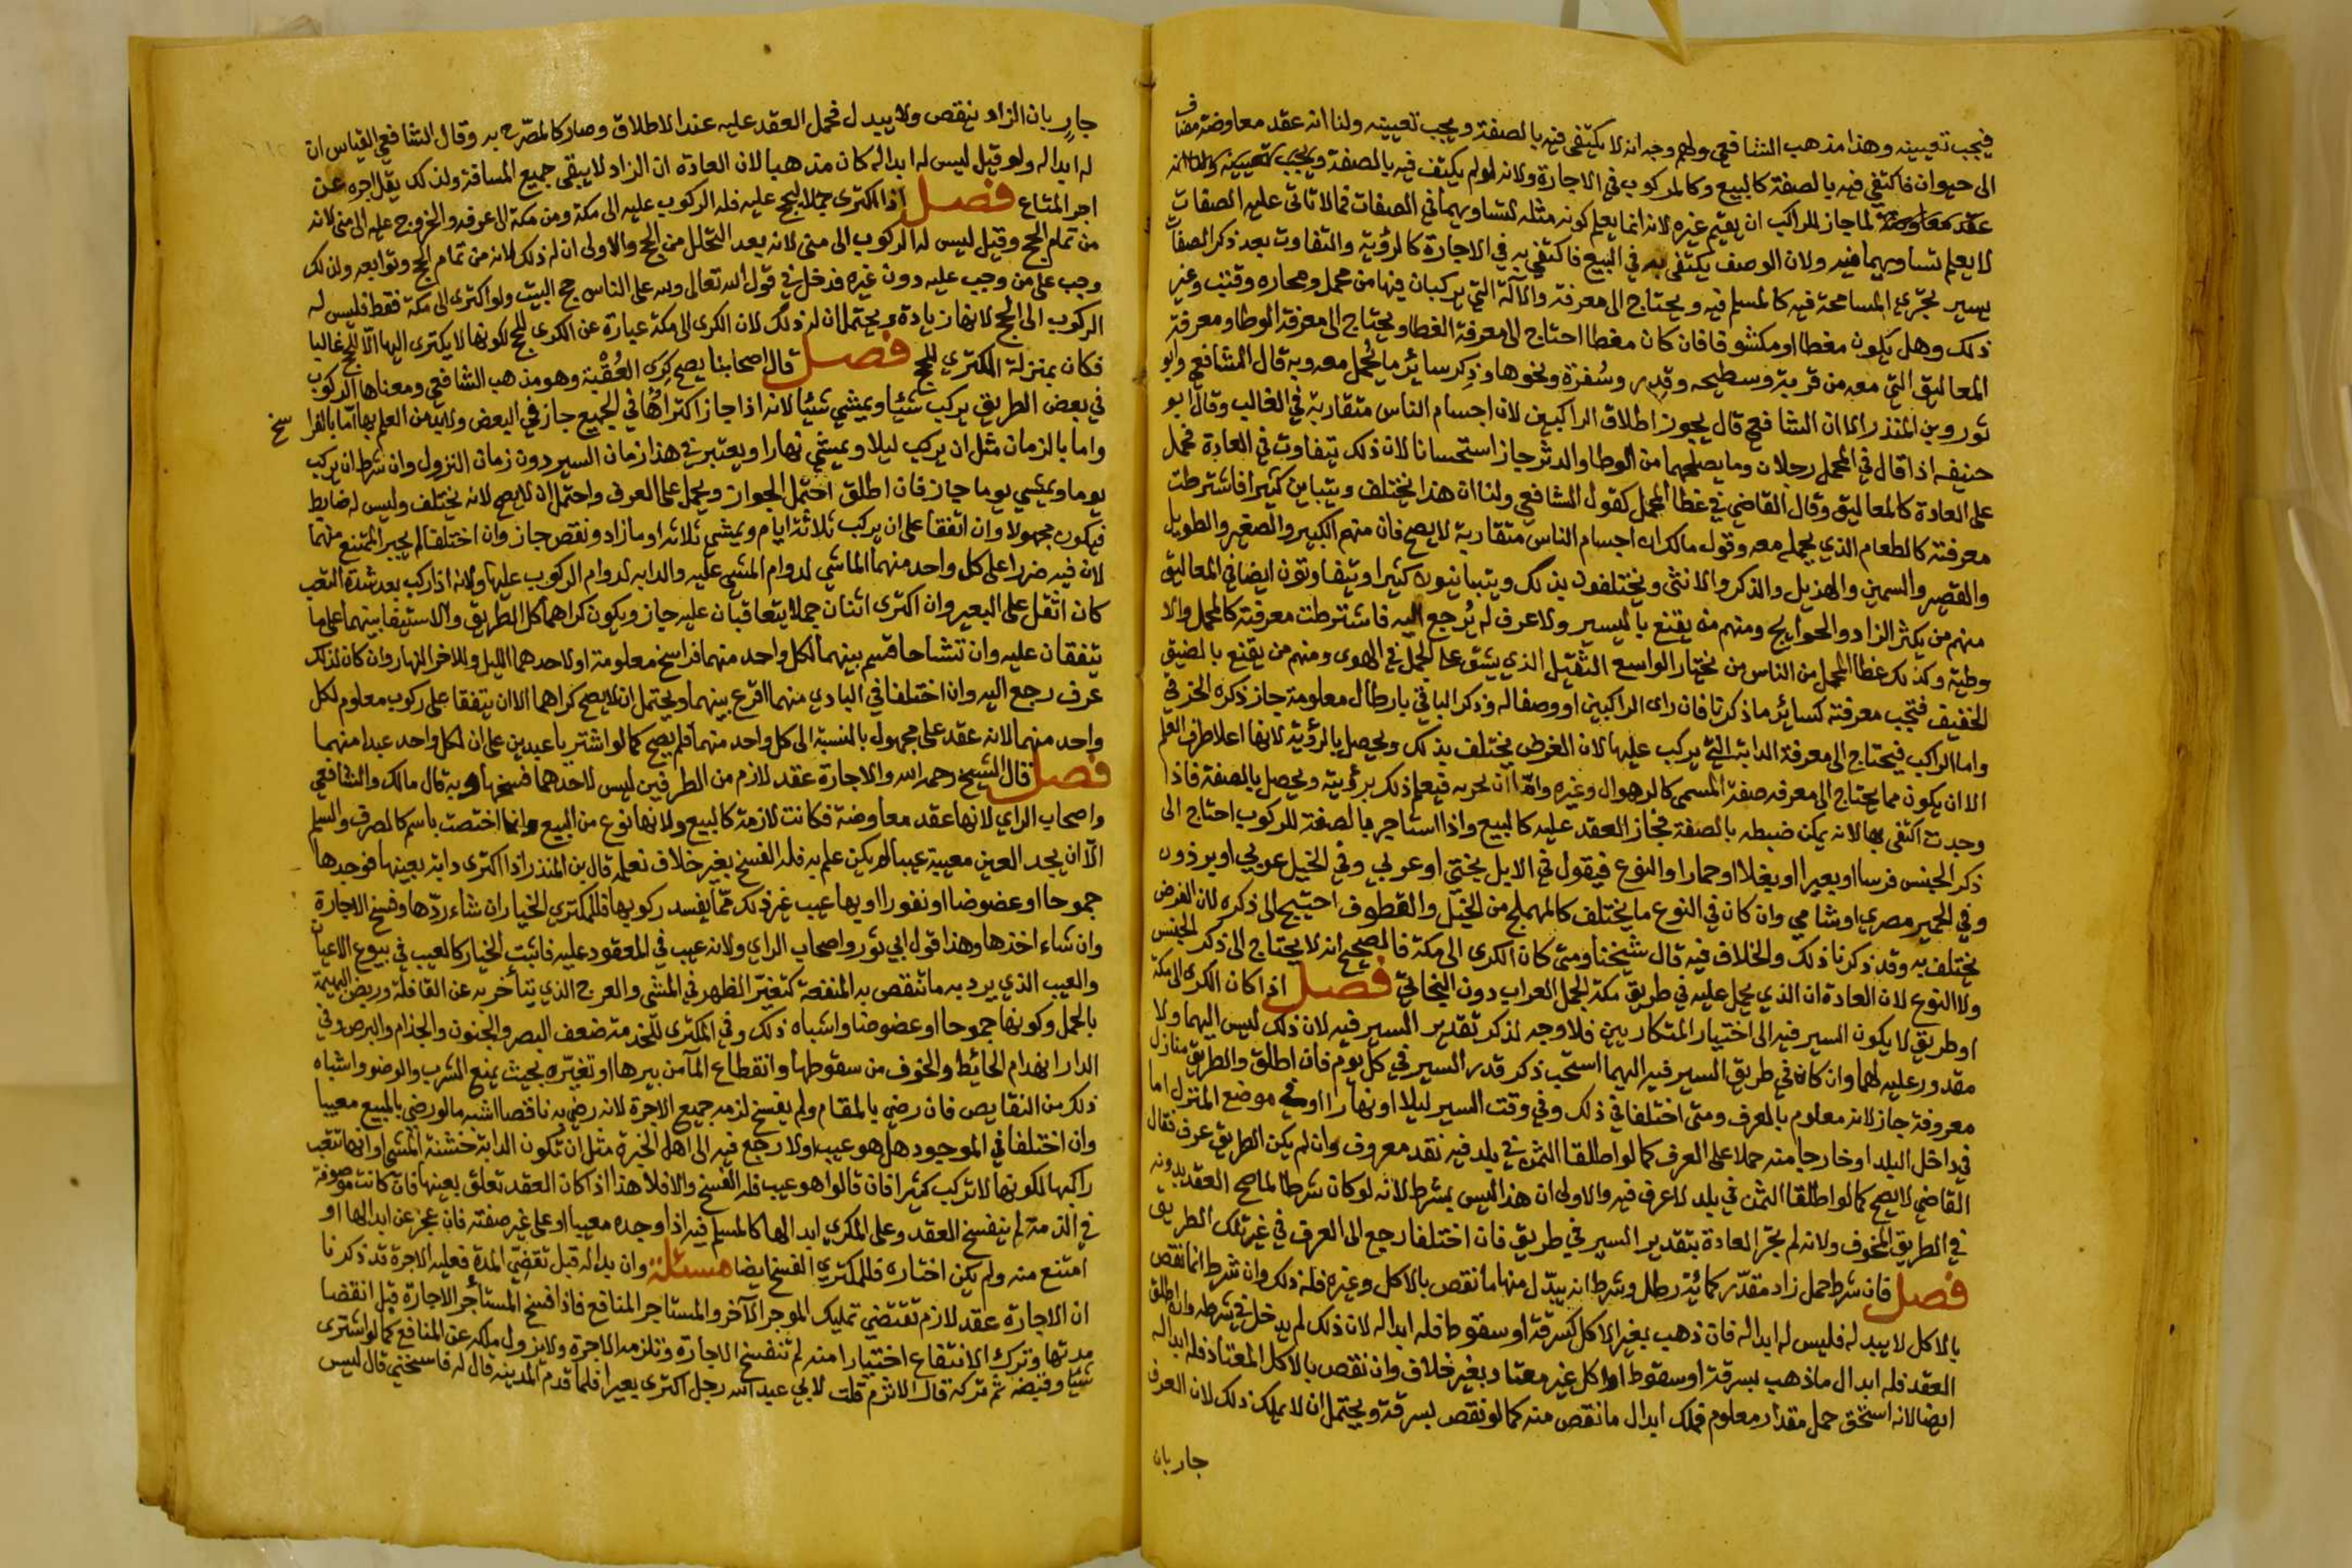 فيجب تعيينه وهذا مذهب الشافعي ولهم وجه انه لا يكتفى فيه بالصفة ويجب تعيينه ولنا انه عقد معاوضة مضاف
الى حيوان فاكتفي فيه بالصفة كالبيع وكالمركوب في الاجارة ولانه لو لم يكتف فيه بالصفة ويجب تعيينه
عقد معاوضة لما جاز للراكب ان يقيم غيره لانه انما يعلم كونه مثله لتساويهما في الصفات فما لا تاتي عليه الصفات
لا يعلم تساويهما فيه ولان الوصف يكتفى به في البيع فاكتفي به في الاجارة كالرؤية والتفاوت بعد ذكر الصفات
يسير تجري المسامحة فيه كالمسلم فيه ويحتاج الى معرفة والآلة التي يركبان فيها من محمل ومحاره وقتب وغير
ذلك وهل يكون مغطا او مكشوفا فان كان مغطا احتاج الى معرفة الغطا ويحتاج الى معرفة الوطا ومعرفة
المعاليق التي معه من قربة وسطيحه وقدر وسفرة ونحوها وذكر سائر ما يحمل معه وبه قال الشافعي وابو
ثور وبن المنذر الا ان الشافعي قال يجوز اطلاق الراكبين لان اجسام الناس متقاربة في الغالب وقال ابو
حنيفه اذا قال في المحمل رجلان وما يصلحهما من الوطا والدثر جاز استحسانا لان ذلك يتفاوت في العادة فحمل
على العادة كالمعاليق وقال القاضي في غطا المحمل كقول الشافعي ولنا ان هذا يختلف ويتباين كثيرا فاشترطت
معرفته كالطعام الذي يحمله معه وقول مالك ان اجسام الناس متقاربة لا يصح فان منهم الكبير والصغير والطويل
والقصير والسمين والهزيل والذكر والانثى ويختلفون بذلك ويتباينون كثيرا ويتفاوتون ايضا في المعاليق
منهم من يكثر الزاد والحوايج ومنهم من يقنع باليسير ولا عرف له يرجع اليه فاشترطت معرفته كالمحمل والا
وطية وكذلك غطا المحمل من الناس من يختار الواسع الثقيل الذي يشتق على الجمل في الهوى ومنهم من يقنع بالضيق
الخفيف فتجب معرفته كسائر ما ذكرنا فان راى الراكبين او وصفا له وذكر الباقي بارطال معلومة جاز ذكره الخرقي
واما الراكب فيحتاج الى معرفة الدابة التي يركب عليها لان الغرض يختلف بذلك ويحصل بالرؤية لانها اعلا طرق العلم
الا ان يكون مما يحتاج الى معرفه صفة المسمى كالرهوال وغيره واما ان يجربه فيعلم ذلك برؤيته ويحصل بالصفة فاذا
وجدت اكتفى بها لانه يمكن ضبطه بالصفة فجاز العقد عليه كالبيع واذا استاجر بالصفة للركوب احتاج الى
ذكر الجنس فرسا او بعيرا او بغلا او حمارا والنوع فيقول في الابل بختي او عربي وفي الخيل عربي او برذون
وفي الحمير مصري او شامي وان كان في النوع ما يختلف كالمهملج من الخيل والقطوف احتيج الى ذكره لان الغرض
يختلف به وقد ذكرنا ذلك والخلاف فيه قال شيخنا ومتى كان الكرى الى مكة فالصحيح انه لا يحتاج الى ذكر الجنس
ولا النوع لان العادة ان الذي يحمل عليه في طريق مكة الجمل العراب دون البخاتي فصل اذا كان الكرى الى مكة
او طريق لا يكون السير فيه الى اختيار المتكاريين فلا وجه لذكر تقدير السير فيه لان ذلك ليس اليهما ولا
مقدور عليه لهما وان كان في طريق السير فيه اليهما استحب ذكر قدر السير في كل يوم فان اطلق والطريق منازل
معروفة جاز لانه معلوم بالعرف ومتى اختلفا في ذلك وفي وقت السير ليلا او نهارا او في موضع المنزل اما
في داخل البلد او خارجا منه حملا على العرف كما لو اطلقا الثمن في بلد فيه نقد معروف وان لم يكن الطريق عرف فقال
القاضي لا يصح كما لو اطلقا الثمن في بلد لا عرف فيه والاولى ان هذا ليس بشرط لانه لو كان شرطا لما صح العقد بدونه
في الطريق المخوف ولانه لم تجر العادة بتقدير السير في طريق فان اختلفا رجع الى العرف في غير تلك الطريق
فصل فان شرط حمل زاد مقدر كمائة رطل وشرط انه يبدل منها ما نقص بالاكل وغيره فله ذلك وان شرط انما نقص
بالاكل لا يبدله فليس له ابداله فان ذهب بغير الاكل كسرقة او سقوط فله ابداله لان ذلك لم يدخل في شرطه وان اطلق
العقد فله ابدال ما ذهب بسرقة او سقوط او اكل غير معتاد بغير خلاف وان نقص بالاكل المعتاد فله ابداله
ايضا لانه استحق حمل مقدار معلوم فملك ابدال ما نقص منه كما لو نقص بسرقة ويحتمل ان لا يملك ذلك لان العرف
جار بان
جار بان الزاد ينقص ولا يبدل فحمل العقد عليه عند الاطلاق وصار كالمصرح به وقال الشافعي القياس ان
له ابداله ولو قيل ليس له ابداله كان مذهبا لان العادة ان الزاد لا يبقى جميع المسافة ولذلك يقل اجره عن
اجر المتاع فصل اذا اكترى جملا ليحج عليه فله الركوب عليه الى مكة ومن مكة الى عرفه والخروج عليه الى منى لانه
من تمام الحج وقيل ليس له الركوب الى منى لانه بعد التحلل من الحج والاولى ان له ذلك لانه من تمام الحج وتوابعه ولذلك
وجب على من وجب عليه دون غيره فدخل في قول الله تعالى ولله على الناس حج البيت ولو اكترى الى مكة فقط فليس له
الركوب الى الحج لانها زيادة ويحتمل ان له ذلك لان الكرى الى مكة عبارة عن الكرى للحج لكونها لا يكترى اليها الا للحج غالبا
فكان بمنزلة المكتري للحج فصل قال اصحابنا يصح كرى العقبة وهو مذهب الشافعي ومعناها الركوب
في بعض الطريق يركب شيئا ويمشي شيئا لانه اذا جاز اكتراها في الجميع جاز في البعض ولا بد من العلم بها اما بالفرا سخ
واما بالزمان مثل ان يركب ليلا ويمشي نهارا ويعتبر في هذا زمان السير دون زمان النزول وان شرط ان يركب
يوما ويمشي يوما جاز فان اطلق احتمل الجواز ويحمل على العرف واحتمل ان لا يصح لانه يختلف وليس له ضابط
فيكون مجهولا وان اتفقا على ان يركب ثلاثة ايام ويمشي ثلاثه او ما زاد ونقص جاز وان اختلفا لم يجبر الممتنع منهما
لان فيه ضررا على كل واحد منهما الماشي لدوام المشي عليه والدابه لدوام الركوب عليها ولانه اذا ركب بعد شدة التعب
كان اثقل على البعير وان اكترى اثنان جملا يتعاقبان عليه جاز ويكون كراهما كل الطريق والاستيفا بينهما على ما
يتفقان عليه وان تشاحا قسم بينهما لكل واحد منهما فراسخ معلومة او لاحدهما الليل وللاخر النهار وان كان لذلك
عرف رجع اليه وان اختلفا في البادي منهما اقرع بينهما ويحتمل ان لا يصح كراهما الا ان يتفقا على ركوب معلوم لكل
واحد منهما لانه عقد على مجهول بالنسبة الى كل واحد منهما فلم يصح كما لو اشتريا عبدين على ان لكل واحد عبدا منهما
فصل قال الشيخ رحمه الله والاجارة عقد لازم من الطرفين ليس لاحدهما فسخها وبه قال مالك والشافعي
واصحاب الراي لانها عقد معاوضة فكانت لازمة كالبيع ولانها نوع من البيع وانما اختصت باسم كالصرف والسلم
الا ان يجد العين معيبة عيبا لم يكن علم به فله الفسخ بغير خلاف نعلمه قال بن المنذر اذا اكترى دابه بعينها فوجدها
جموحا او عضوضا او نفورا او بها عيب غير ذلك مما يفسد ركوبها فللمكتري الخيار ان شاء ردها وفسخ الاجارة
وان شاء اخذها وهذا قول ابي ثور واصحاب الراي ولانه عيب في المعقود عليه فاثبت الخيار كالعيب في بيوع الاعيان
والعيب الذي يرد به ما تنقص به المنفعة كتعثر الظهر في المشي والعرج الذي يتأخر به عن القافلة وربض البهيمة
بالحمل وكونها جموحا او عضوضا واشباه ذلك وفي المكتري للخدمة ضعف البصر والجنون والجذام والبرص وفي
الدار انهدام الحائط والخوف من سقوطها وانقطاع الماء من بيرها او تغيره بحيث يمنع الشرب والوضوء واشباه
ذلك من النقايص فان رضي بالمقام ولم يفسخ لزمه جميع الاجرة لانه رضي به ناقصا اشبه ما لو رضي بالمبيع معيبا
وان اختلفا في الموجود هل هو عيب او لا رجع فيه الى اهل الخبرة مثل ان تكون الدابة خشنة المشي او انها تتعب
راكبها لكونها لا تركب كثيرا فان قالوا هو عيب فله الفسخ والا فلا هذا اذا كان العقد تعلق بعينها فان كانت موصوفة
في الذمة لم ينفسخ العقد وعلى المكري ابدالها كالمسلم فيه اذا وجده معيبا او على غير صفته فان عجز عن ابدالها او
امتنع منه ولم يكن اختاره فللمكتري الفسخ ايضا مسئلة وان بدا له قبل تقضي المدة فعليه الاجرة قد ذكرنا
ان الاجارة عقد لازم تقتضي تمليك الموجر الآخر والمستاجر المنافع فاذا فسخ المستأجر الاجارة قبل انقضا
مدتها وترك الانتفاع اختيارا منه لم تنفسخ الاجارة وتلزمه الاجرة ولا يزول ملكه عن المنافع كما لو اشترى
شيئا وقبضه ثم تركه قال الاثرم قلت لابي عبد الله رجل اكترى بعيرا فلما قدم المدينه قال له فاسخني قال ليس